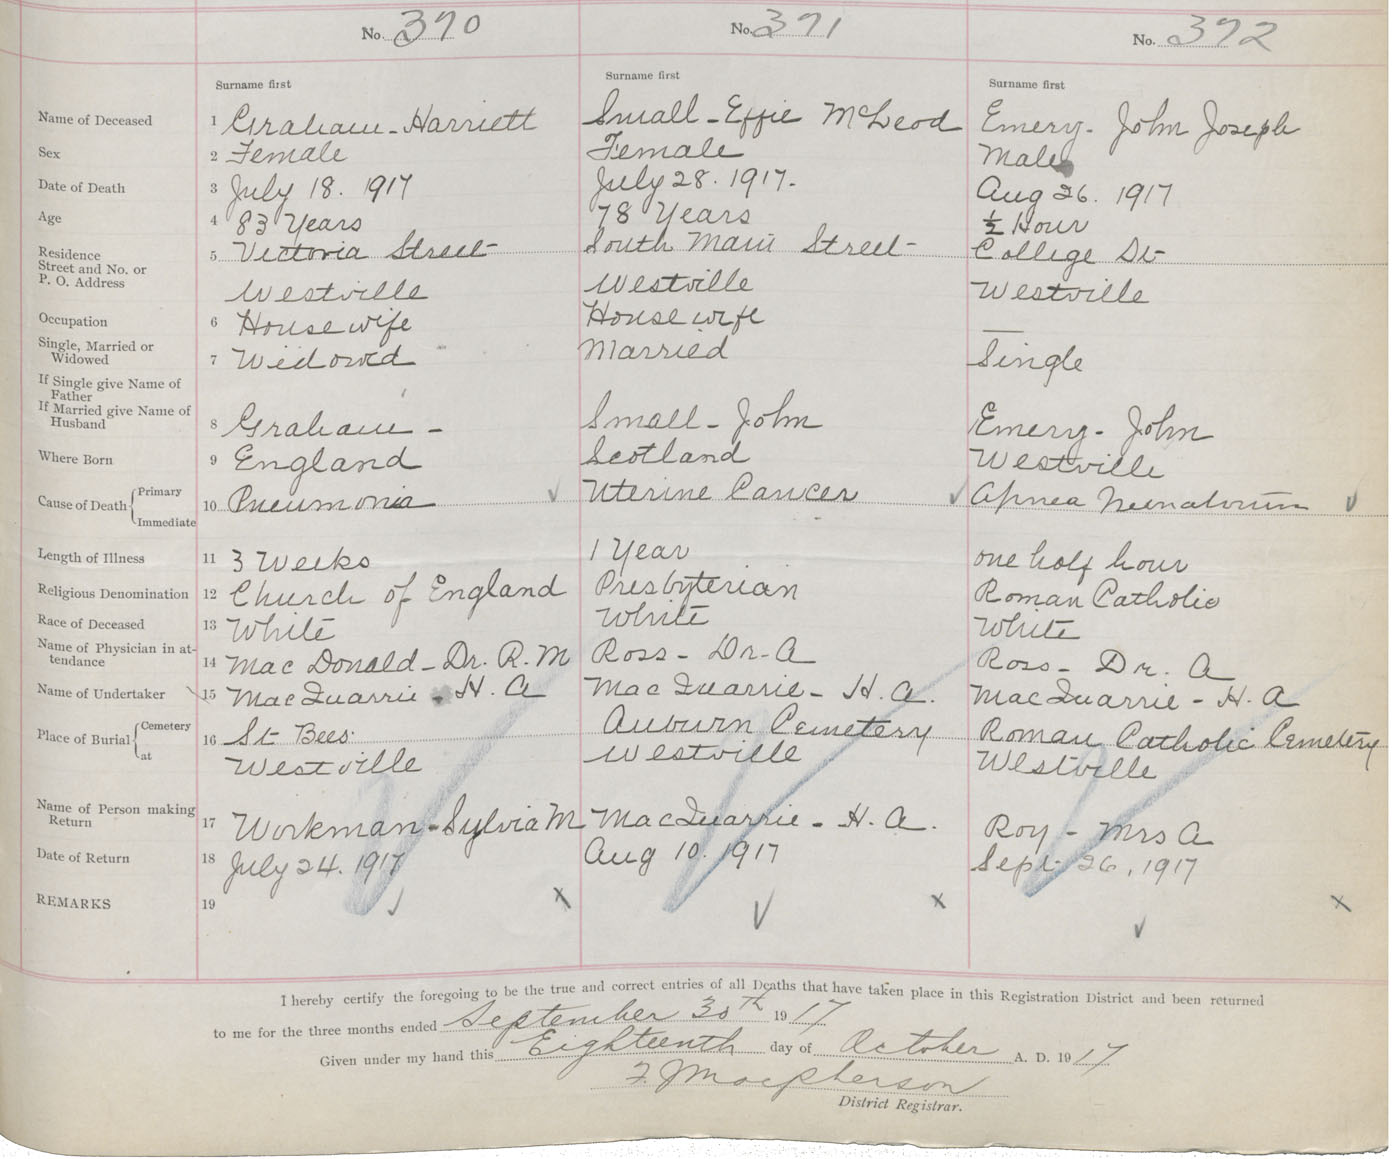 No. 370 No. 371 No. 372
Surname first Surname first Surname first
Name of Deceased 1 Graham - Harriett Small - Effie McLeod Emery - John Joseph
Sex 2 Female Female Male
Date of Death 3 July 18. 1917 July 28. 1917. Aug 26. 1917
Age 4 83 Years 78 Years ½ Hour
Residence 5 Victoria Street South Main Street College St
Street and No. or
P. O. Address Westville Westville Westville
Occupation 6 Housewife Housewife —
Single, Married or
Widowed 7 Widowed Married Single
If Single give Name of
Father
If Married give Name of
Husband 8 Graham - Small - John Emery - John
Where Born 9 England Scotland Westville
Cause of Death { Primary
10 Pneumonia Uterine Cancer Apnea Neonatorum
Immediate
Length of Illness 11 3 Weeks 1 Year one half hour
Religious Denomination 12 Church of England Presbyterian Roman Catholic
Race of Deceased 13 White White White
Name of Physician in at-
tendance 14 MacDonald - Dr. R. M Ross - Dr. A Ross - Dr. A
Name of Undertaker 15 MacQuarrie - H. A MacQuarrie - H. A. MacQuarrie - H. A
Place of Burial { Cemetery 16 St Bees. Auburn Cemetery Roman Catholic Cemetery
at Westville Westville Westville
Name of Person making
Return 17 Workman - Sylvia M MacQuarrie - H. A. Roy - Mrs A
Date of Return 18 July 24. 1917 Aug 10. 1917 Sept 26, 1917
REMARKS 19
I hereby certify the foregoing to be the true and correct entries of all Deaths that have taken place in this Registration District and been returned
to me for the three months ended September 30th 1917
Given under my hand this Eighteenth day of October A. D. 1917
F. J. Macpherson
District Registrar.